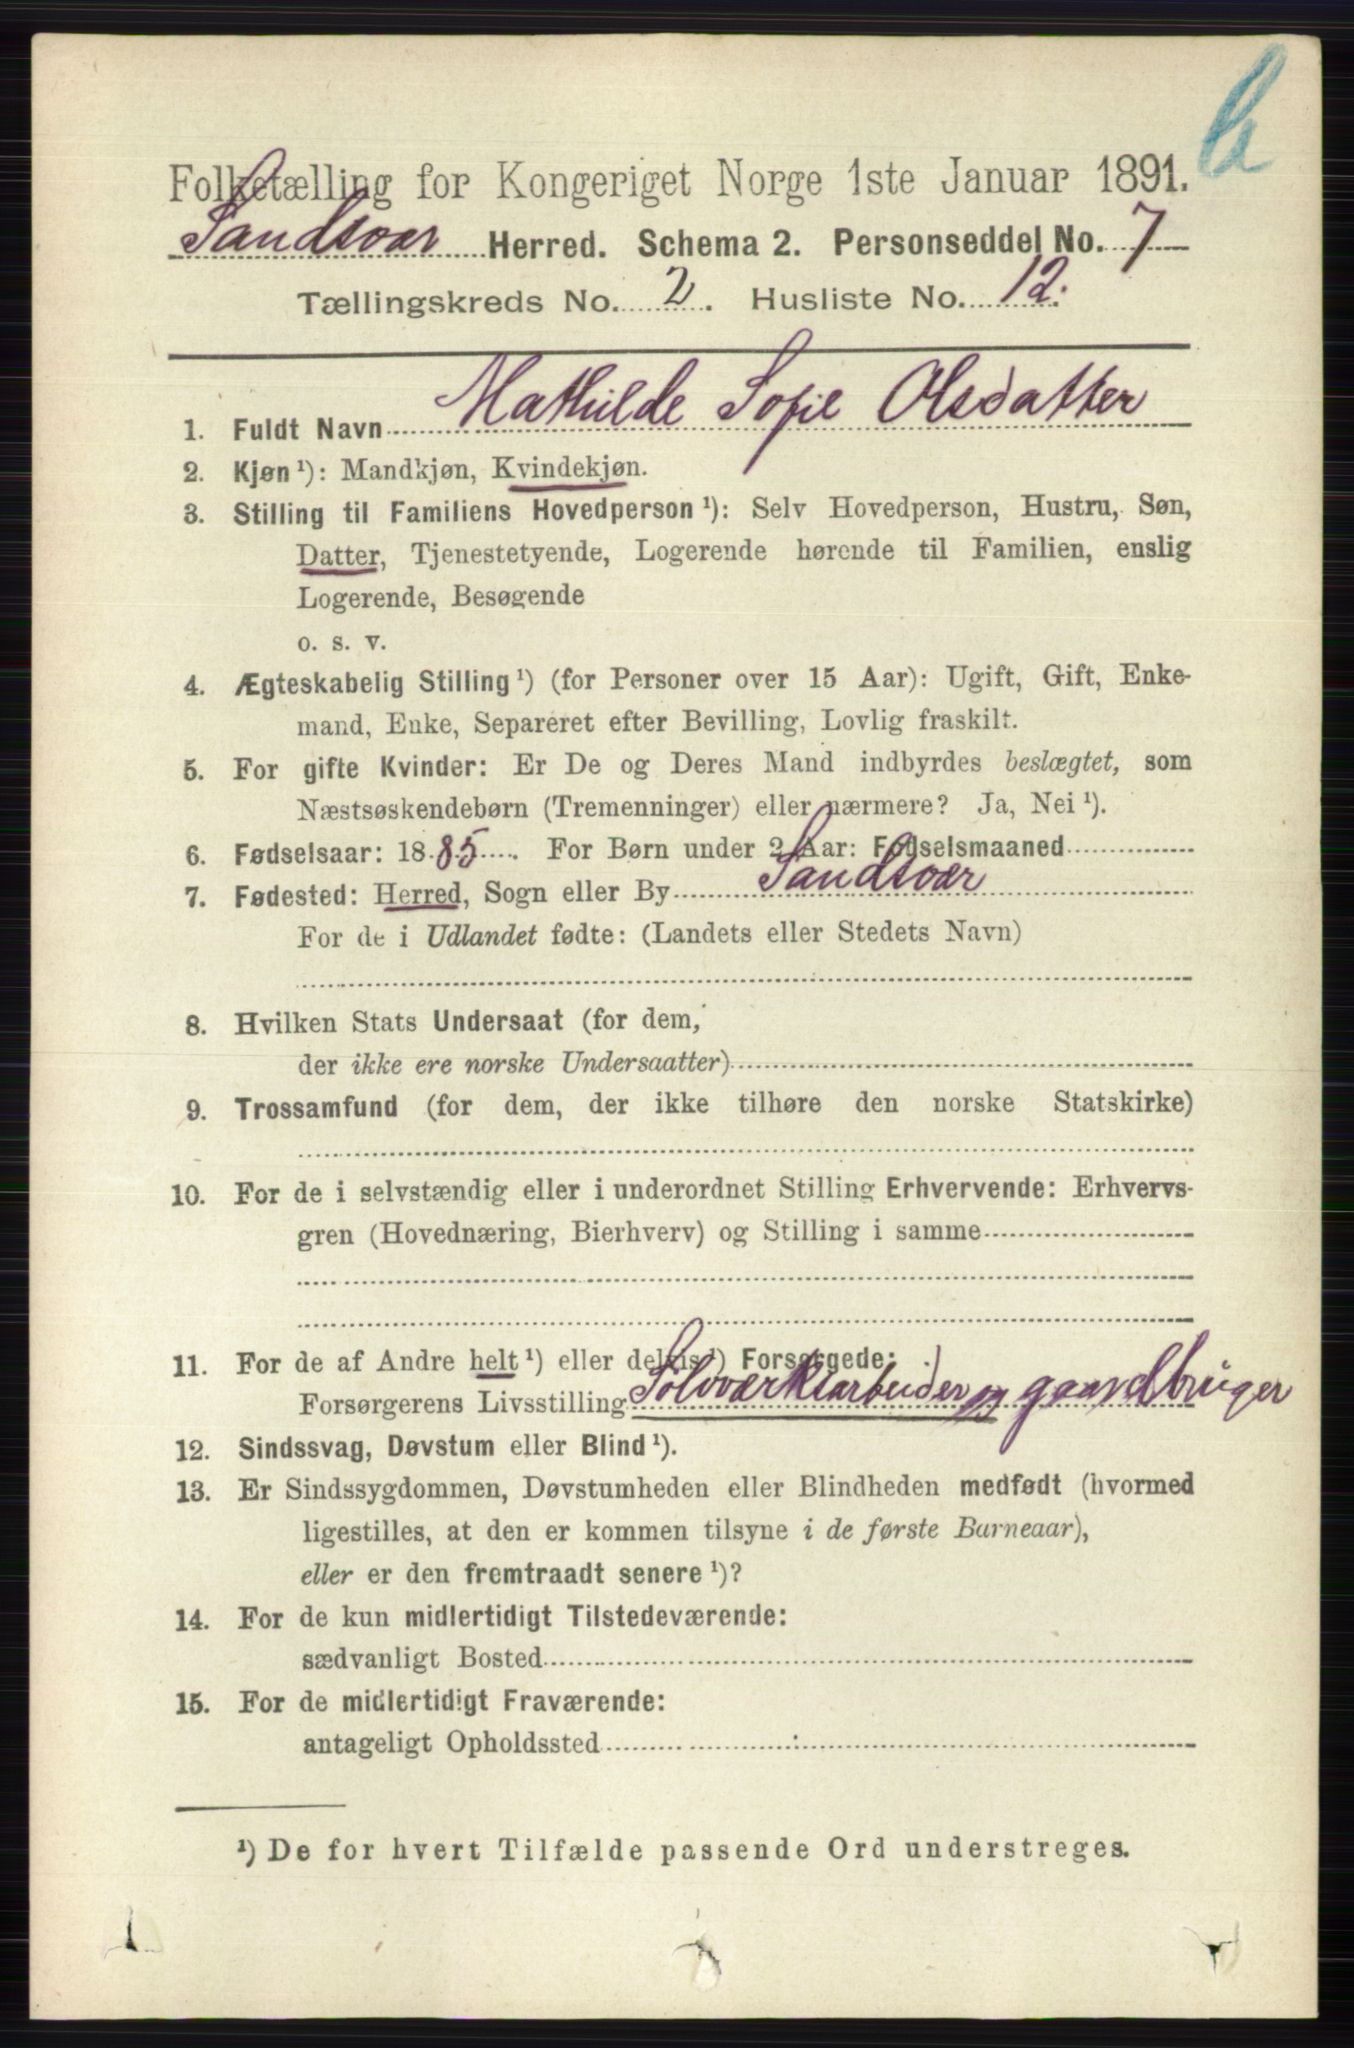 Folketælling for Kongeriget Norge 1ste Januar 1891.
Sandsvær Herred. Schema 2. Personseddel No. 7
Tællingskreds No. 2. Husliste No. 12.
1. Fuldt Navn Mathilde Sofie Olsdatter
2. Kjøn ¹): Mandkjøn, Kvindekjøn.
3. Stilling til Familiens Hovedperson ¹): Selv Hovedperson, Hustru, Søn,
Datter, Tjenestetyende, Logerende hørende til Familien, enslig
Logerende, Besøgende
o. s. v.
4. Ægteskabelig Stilling ¹) (for Personer over 15 Aar): Ugift, Gift, Enke-
mand, Enke, Separeret efter Bevilling, Lovlig fraskilt.
5. For gifte Kvinder: Er De og Deres Mand indbyrdes beslægtet, som
Næstsøskendebørn (Tremenninger) eller nærmere? Ja, Nei ¹).
6. Fødselsaar: 1885. For Børn under 2 Aar: Fødselsmaaned
7. Fødested: Herred, Sogn eller By Sandsvær
For de i Udlandet fødte: (Landets eller Stedets Navn)
8. Hvilken Stats Undersaat (for dem,
der ikke ere norske Undersaatter)
9. Trossamfund (for dem, der ikke tilhøre den norske Statskirke)
10. For de i selvstændig eller i underordnet Stilling Erhvervende: Erhvervs-
gren (Hovednæring, Bierhverv) og Stilling i samme
11. For de af Andre helt ¹) eller delvis ¹) Forsørgede:
Forsørgerens Livsstilling Sølvværksarbeider og gaardbruger
12. Sindssvag, Døvstum eller Blind ¹).
13. Er Sindssygdommen, Døvstumheden eller Blindheden medfødt (hvormed
ligestilles, at den er kommen tilsyne i de første Barneaar),
eller er den fremtraadt senere ¹)?
14. For de kun midlertidigt Tilstedeværende:
sædvanligt Bosted
15. For de midlertidigt Fraværende:
antageligt Opholdssted
¹) De for hvert Tilfælde passende Ord understreges.